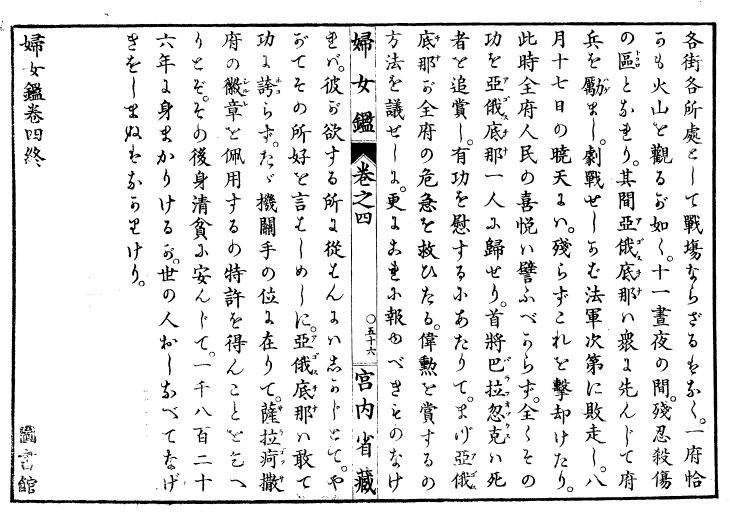 各街各所處として戰塲ならざるもなく。一府恰
かも火山を觀るが如く。十一晝夜の間。殘忍殺傷
の區となれり。其間亞俄底那ハ衆に先んじて府
兵を勵まし。劇戰せしかば法軍次第に敗走し。八
月十七日の曉天にハ。殘らずこれを擊却けたり。
此時全府人民の喜悅ハ譬ふべからず。全くその
功を亞俄底那一人に歸せり。首將巴拉忽克ハ死
者を追賞し。有功を慰するにあたりて。まづ亞俄
底那が全府の危急を救ひたる。偉勳を賞するの
方法を議せしに。更にこれに報ゆべきものなけ
婦女鑑 卷之四 ○五十六 宮內省藏
れバ。彼が欲する所に從はんにハしかじとて。や
がてその所好を言はしめしに。亞俄底那ハ敢て
功に誇らず。たゞ機關手の位に在りて。薩拉疴撒
府の徽章を佩用するの特許を得んことを乞へ
りとぞ。その後身清貧に安んじて。一千八百二十
六年に身まかりけるが。世の人おしなべてなげ
きをしまぬはなかりけり。
婦女鑑卷四終
圖書館